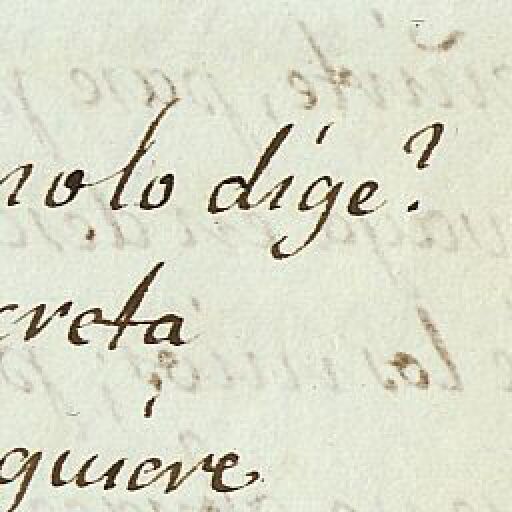 nolo dige?
creta
quiere